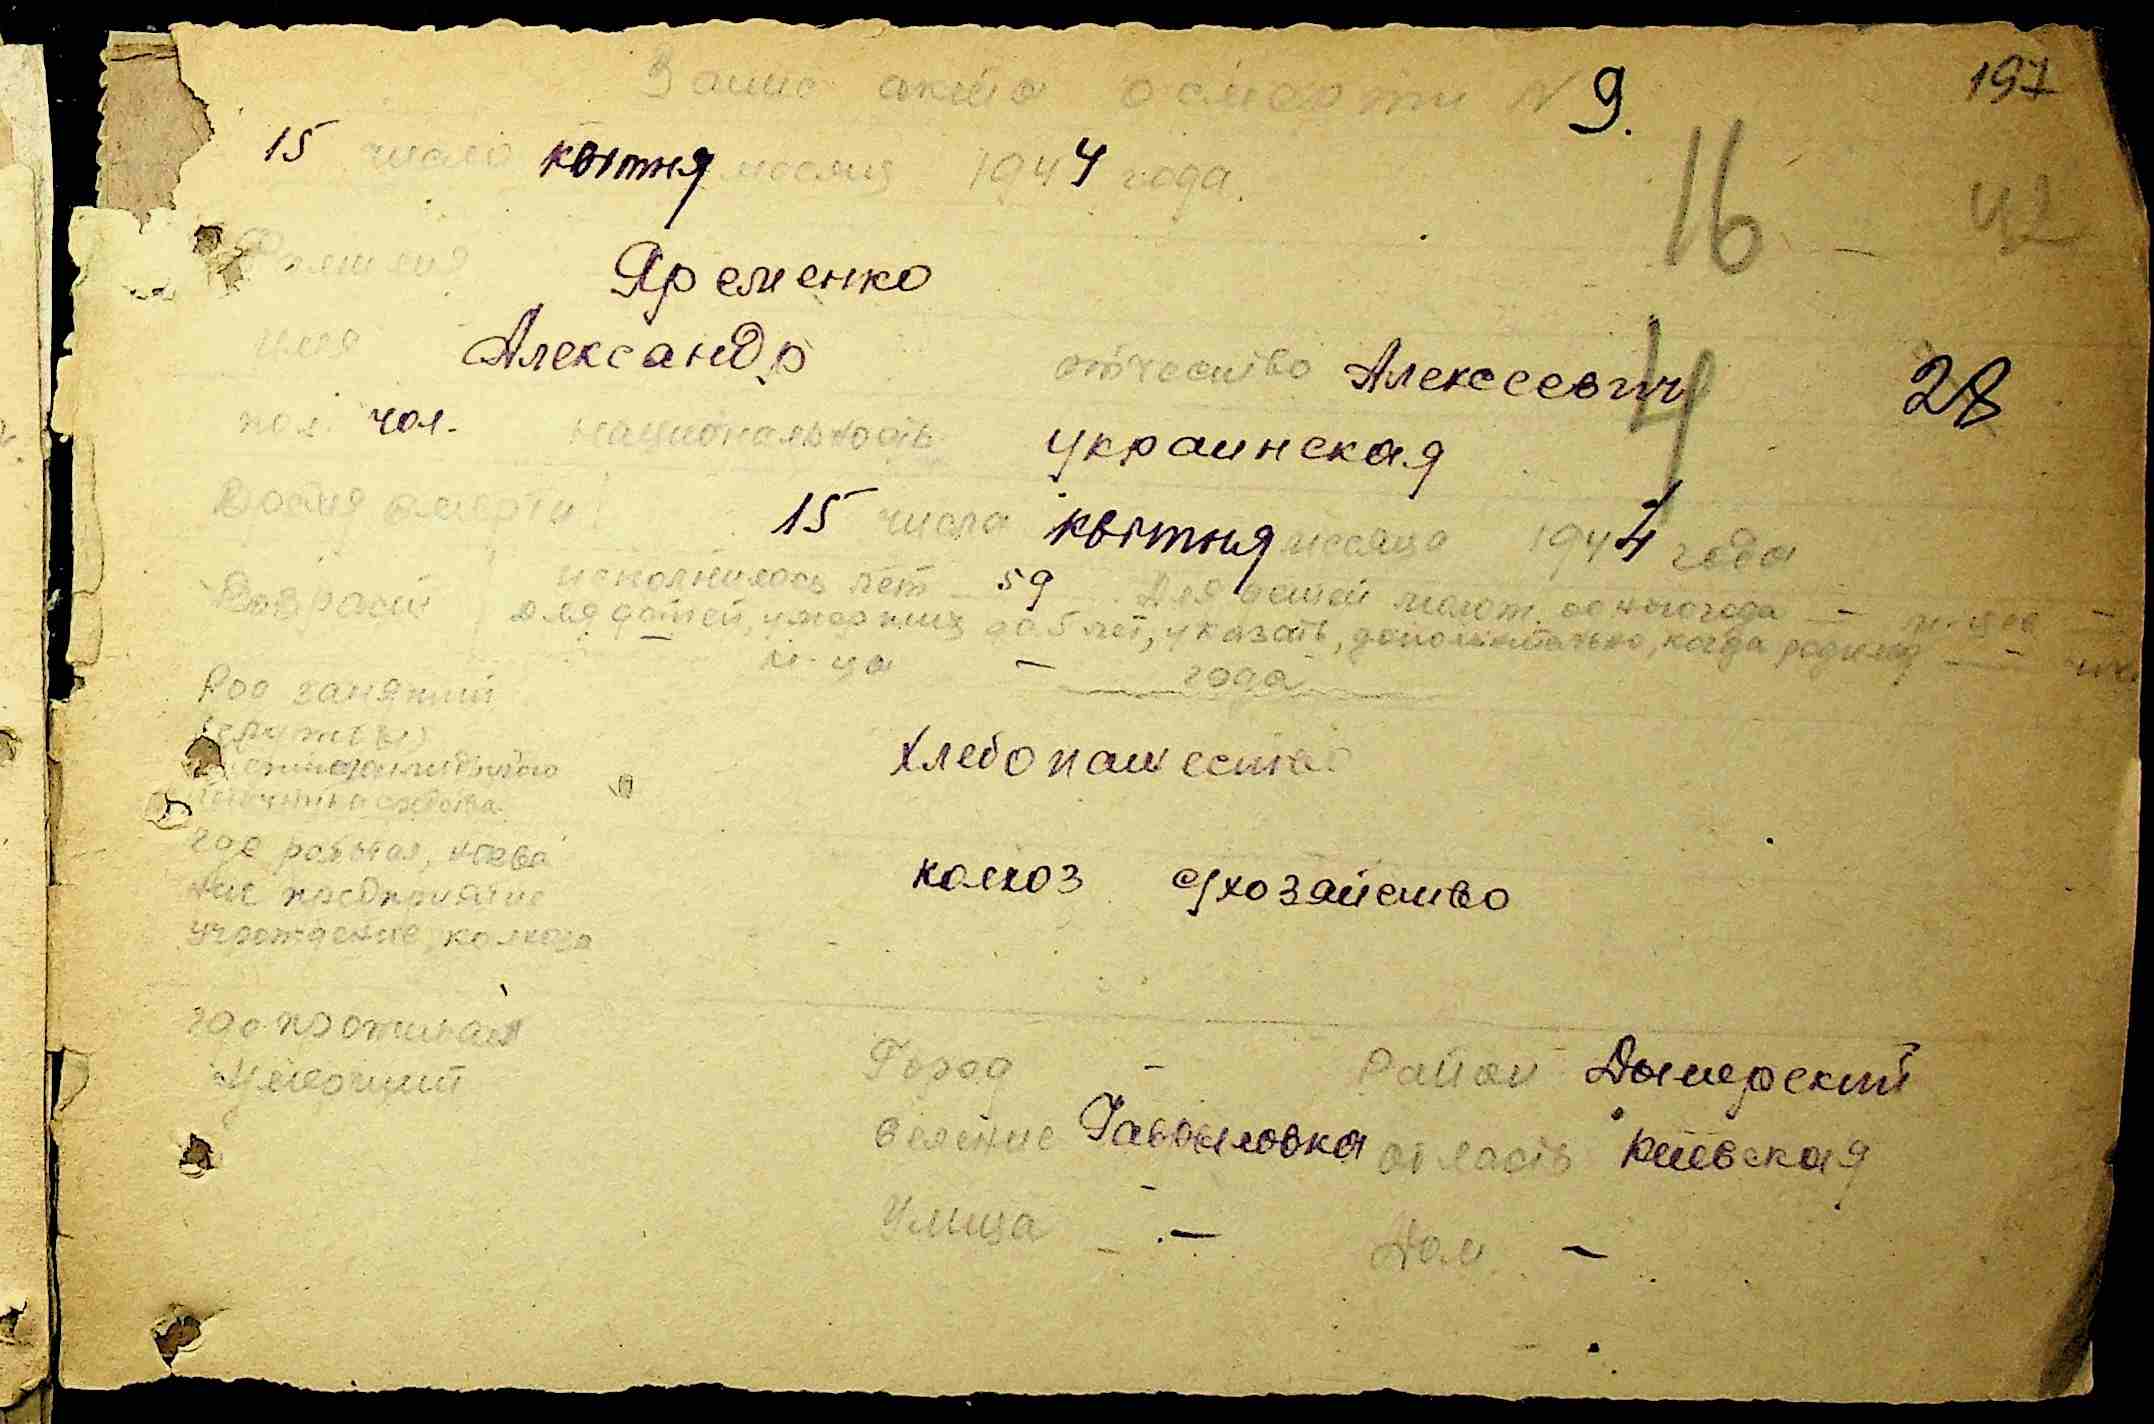 Запис акта о смерти N 9. 197
15 число квітня месяца 1944 года.
16 - 42
Фамилия Яременко
имя Александр отчество Алексеевич 28
4
пол чол. национальность украинская
Время смерти 15 числа квітня месяца 1944 года
Возраст исполнилось лет 59 Для детей одного года —
для детей, умерших до 5 лет, указать, дополнительно, когда —
— м-ца — года
Род занятий
хлебопашество
средства
где работал,
колхоз с/хозяйство
предприятие
учреждение, колхоза
где проживал
умерший
Город — Район Дымерский
селение Гавриловка область Киевская
Улица — Дом —